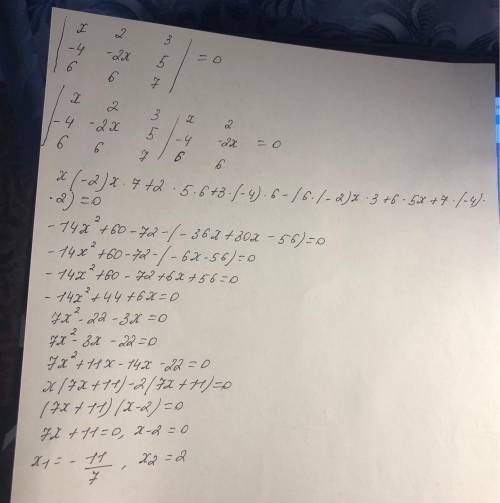 | x 2 3 |
| -4 -2x 5 | = 0
| 6 6 7 |
| x 2 3 | x 2
| -4 -2x 5 | -4 -2x = 0
| 6 6 7 | 6 6
x(-2)x·7+2·5·6+3·(-4)·6-(6·(-2)x·3+6·5x+7·(-4)·
·2)=0
-14x²+60-72-(-36x+30x-56)=0
-14x²+60-72-(-6x-56)=0
-14x²+60-72+6x+56=0
-14x²+44+6x=0
7x²-22-3x=0
7x²-3x-22=0
7x²+11x-14x-22=0
x(7x+11)-2(7x+11)=0
(7x+11)(x-2)=0
7x+11=0, x-2=0
x₁=-11/7, x₂=2